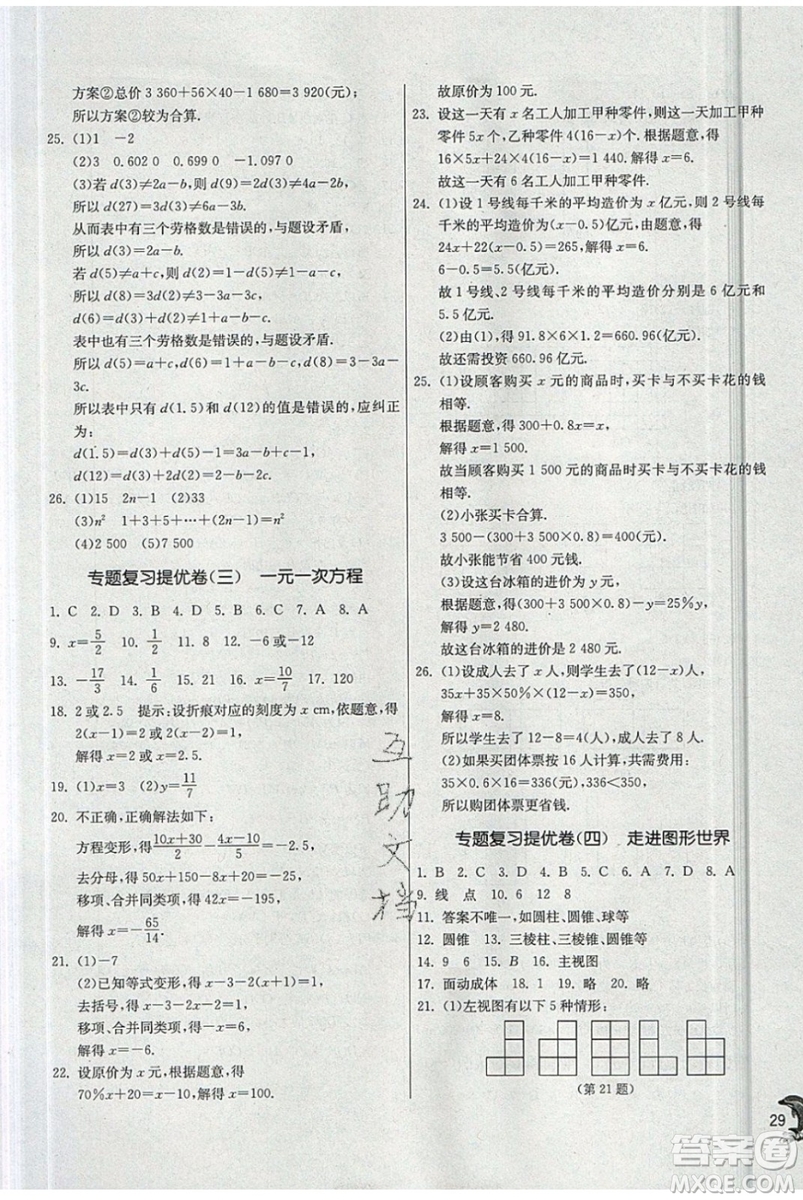 方案②总价 3 360+56×40-1 680=3 920(元);
所以方案②较为合算.
25. (1)1 -2
(2)3 0.602 0 0.699 0 -1.097 0
(3)若 d(3)≠2a-b, 则 d(9)=2d(3)≠4a-2b,
所以 d(27)=3d(3)≠6a-3b.
从而表中有三个劳格数是错误的,与题设矛盾,
所以 d(3)=2a-b.
若 d(5)≠a+c,则 d(2)=1-d(5)≠1-a-c,
所以 d(8)=3d(2)≠3-3a-3c,
d(6)=d(3)+d(2)≠1+a-b-c,
表中也有三个劳格数是错误的,与题设矛盾.
所以 d(5)=a+c, d(8)=3d(2)=3[1-d(5)]=3-3a-
3c.
所以表中只有 d(1.5)和 d(12)的值是错误的,应纠正
为:
d(1.5)=d(3)+d(5)-1=3a-b+c-1,
d(12)=d(3)+2d(2)=2-b-2c.
26. (1)15 2n-1 (2)33
(3)n² 1+3+5+…+(2n-1)=n²
(4)2 500 (5)7 500
专题复习提优卷(三) 一元一次方程
1. C 2. D 3. B 4. D 5. B 6. C 7. A 8. A
9. x=5/2 10. 1/2 11. 8 12. -6或-12
13. -17/3 14. 1/6 15. 21 16. x=10/7 17. 120
18. 2 或 2.5 提示:设折痕对应的刻度为 x cm,依题意,得
2(x-1)=2 或 2(x-2)=1,
解得 x=2 或 x=2.5.
19. (1)x=3 (2)y=11/7
20. 不正确,正确解法如下:
方程变形,得(10x+30)/2-(4x-10)/5=-2.5,
去分母,得 50x+150-8x+20=-25,
移项、合并同类项,得 42x=-195,
解得 x=-65/14.
21. (1)-7
(2)已知等式变形,得 x-2(4-x)=-26,
去括号,得 x-8+2x=-26,
移项、合并同类项,得 3x=-18,
解得 x=-6.
22. 设原价为 x 元,根据题意,得
70%x+20=x-10,解得 x=100.
故原价为 100 元.
23. 设这一天有 x 名工人加工甲种零件,则这一天加工甲种
零件 5x 个,乙种零件 4(16-x)个.根据题意,得
16×5x+24×4(16-x)=1 440.解得 x=6.
故这一天有 6 名工人加工甲种零件.
24. (1)设 1 号线每千米的平均造价为 x 亿元,则 2 号线每
千米的平均造价为(x-0.5)亿元,由题意,得
24x+22(x-0.5)=265,解得 x=6.
6-0.5=5.5.
故 1 号线、2 号线每千米的平均造价分别是 6 亿元和
5.5 亿元.
(2)由(1)得 91.8×6×1.2=660.96(亿元).
故还需投资 660.96 亿元.
25. (1)设顾客购买 x 元的商品时,买卡与不买卡花的钱
相等.
根据题意,得 300+0.8x=x,
解得 x=1 500.
故当顾客购买 1 500 元的商品时买卡与不买卡花的钱
相等.
(2)小张买卡合算.
3 500-(300+3 500×0.8)=400(元).
故小张能节省 400 元钱.
(3)设这台冰箱的进价为 y 元,
根据题意,得(300+3 500×0.8)-y=25%y,
解得 y=2 480.
故这台冰箱的进价是 2 480 元.
26. (1)设成人去了 x 人,则学生去了(12-x)人,
35x+35×50%×(12-x)=350,
解得 x=8.
所以学生去了 12-8=4(人),成人去了 8 人.
(2)如果买团体票按 16 人计算,共需费用:
35×0.6×16=336(元),336<350,
所以购团体票更省钱.
专题复习提优卷(四) 走进图形世界
1. B 2. C 3. C 4. D 5. A 6. D 7. D 8. A
9. 线 点 10. 6 12 8
11. 答案不唯一,如圆柱、圆锥、球等
12. 圆锥 13. 三棱柱、三棱锥、圆锥
14. 9 6 15. B 16. 主视图
17. 面动成体 18. 略 19. 略 20. 略
21. (1)左视图有以下 5 种情形:
(第 21 题)
29
互助文档
答案圈
MXQE.COM